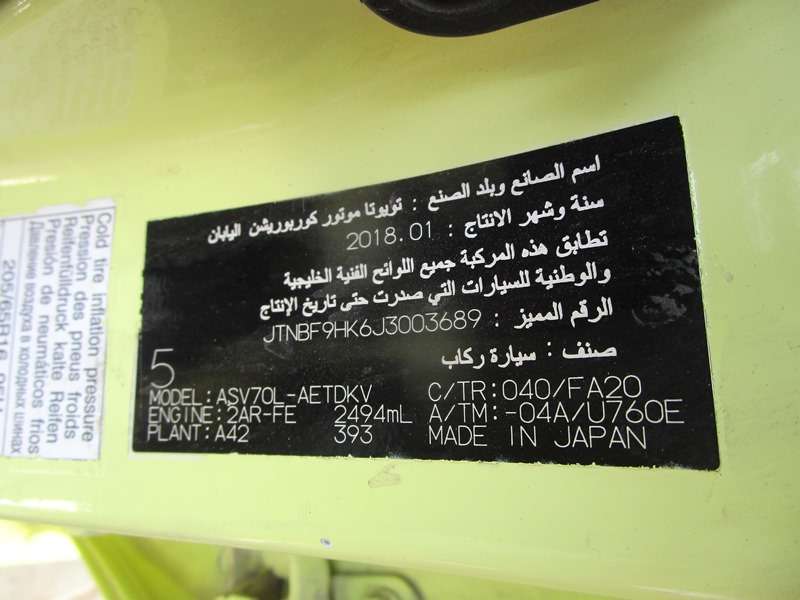 اسم الصانع وبلد الصنع : تويوتا موتور كوربوريشن اليابان
سنة وشهر الانتاج : 2018.01
تطابق هذه المركبة جميع اللوائح الفنية الخليجية
والوطنية للسيارات التي صدرت حتى تاريخ الإنتاج
الرقم المميز : JTNBF9HK6J3003689
صنف : سيارة ركاب
5
MODEL: ASV70L-AETDKV C/TR: 040/FA20
ENGINE: 2AR-FE 2494mL A/TM: -04A/U760E
PLANT: A42 393 MADE IN JAPAN
Cold tire inflation pressure
Pression des pneus froids
Reifenfülldruck kalte Reifen
Presión de neumáticos fríos
Давление воздуха в холодных шинах
205/65R16